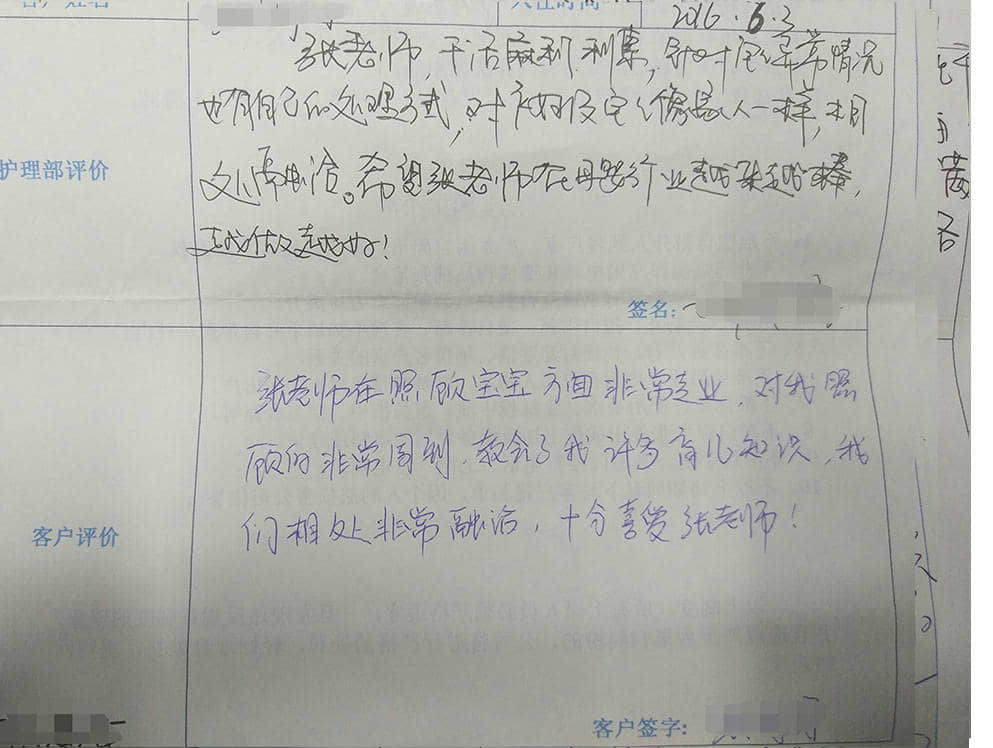 客户姓名 入住时间 2016.6.3
张老师,干活麻利,利索,针对宝宝异常情况
护理部评价
也有自己的处理方式,对产妇及宝宝像家人一样,相
处很融洽。希望张老师在母婴行业越来越棒,
越做越好!
签名:
张老师在照顾宝宝方面非常专业,对我照
顾的非常周到,教会了我许多育儿知识,我
客户评价
们相处非常融洽,十分喜爱张老师!
客户签字: